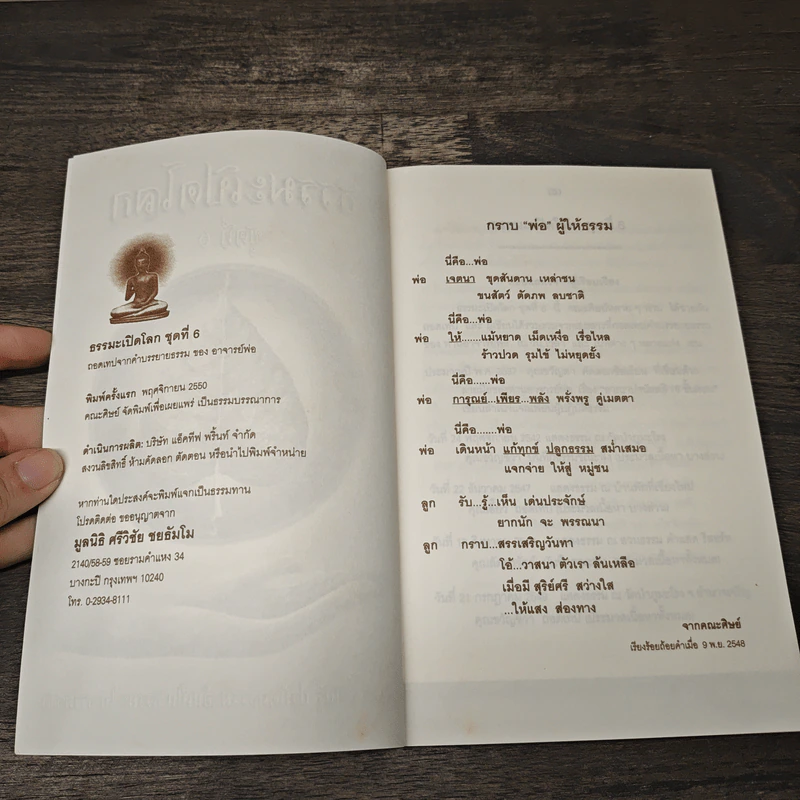 ธรรมะเปิดโลก ชุดที่ 6
ถอดเทปจากคำบรรยายธรรม ของ อาจารย์พ่อ
พิมพ์ครั้งแรก พฤศจิกายน 2550
คณะศิษย์ จัดพิมพ์เพื่อเผยแพร่ เป็นธรรมบรรณาการ
ดำเนินการผลิต: บริษัท แอ๊คทีฟ พริ้นท์ จำกัด
สงวนลิขสิทธิ์ ห้ามคัดลอก ตัดตอน หรือนำไปพิมพ์จำหน่าย
หากท่านใดประสงค์จะพิมพ์แจกเป็นธรรมทาน
โปรดติดต่อ ขออนุญาตจาก
มูลนิธิ ศรีวิชัย ชยธัมโม
2140/58-59 ซอยรามคำแหง 34
บางกะปิ กรุงเทพฯ 10240
โทร. 0-2934-8111
กราบ "พ่อ" ผู้ให้ธรรม
นี่คือ...พ่อ
พ่อ เจตนา ขุดสันดาน เหล่าชน
ขนสัตว์ ตัดภพ ลบชาติ
นี่คือ...พ่อ
พ่อ ให้.......แม้หยาด เม็ดเหงื่อ เรื่อไหล
ร้าวปวด รุมไข้ ไม่หยุดยั้ง
นี่คือ......พ่อ
พ่อ การุณย์...เพียร...พลัง พรั่งพรู คู่เมตตา
นี่คือ.......พ่อ
พ่อ เดินหน้า แก้ทุกข์ ปลูกธรรม สม่ำเสมอ
แจกจ่าย ให้สู่ หมู่ชน
ลูก รับ...รู้...เห็น เด่นประจักษ์
ยากนัก จะ พรรณนา
ลูก กราบ...สรรเสริญวันทา
โอ้...วาสนา ตัวเรา ล้นเหลือ
เมื่อมี สุริย์ศรี สว่างใส
...ให้แสง ส่องทาง
จากคณะศิษย์
เรียงร้อยถ้อยคำเมื่อ 9 พ.ย. 2548